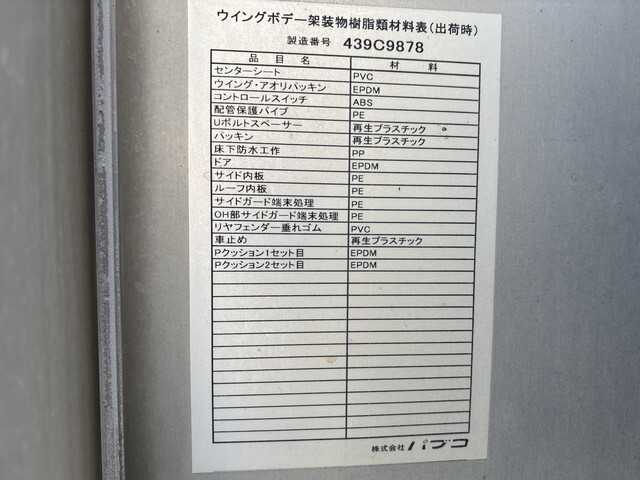 ウイングボデー架装物樹脂類材料表(出荷時)
製造番号 439C9878
品目名 材料
センターシート PVC
ウイング・アオリパッキン EPDM
コントロールスイッチ ABS
配管保護パイプ PE
Uボルトスペーサー 再生プラスチック
パッキン 再生プラスチック
床下防水工作 PP
ドア EPDM
サイド内板 PE
ルーフ内板 PE
サイドガード端末処理 PE
OH部サイドガード端末処理 PE
リヤフェンダー垂れゴム PVC
車止め 再生プラスチック
Pクッション1セット目 EPDM
Pクッション2セット目 EPDM
株式会社 パブコ